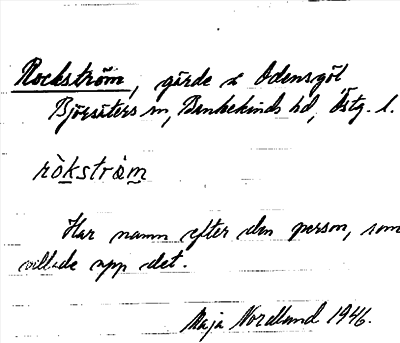 Rockström, gärde i Odensgöl
Björsäters sn, Bankekinds hd, Östg. l.
ròkstrám
Har namn efter den person, som
odlade upp det.
Maja Nordlund 1946.